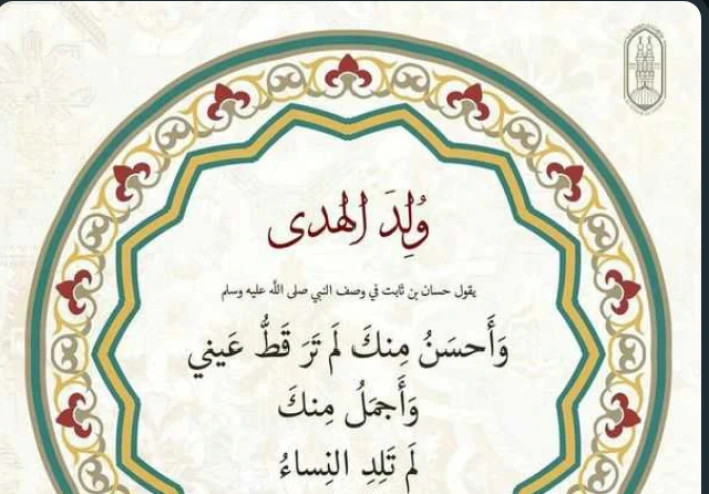 وُلِدَ الهدى
يقول حسان بن ثابت في وصف النبي صلى الله عليه وسلم
وَأَحسَنُ مِنكَ لَم تَرَ قَطُّ عَيني
وَأَجمَلُ مِنكَ
لَم تَلِدِ النِساءُ